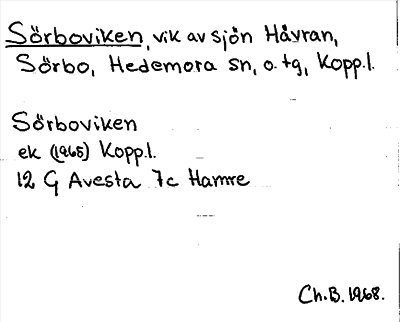 Sörboviken, vik av sjön Håvran,
Sörbo, Hedemora sn, o. tg, Kopp.l.
Sörboviken
ek (1965) Kopp.l.
12 G Avesta 7c Hamre
Ch.B. 1968.